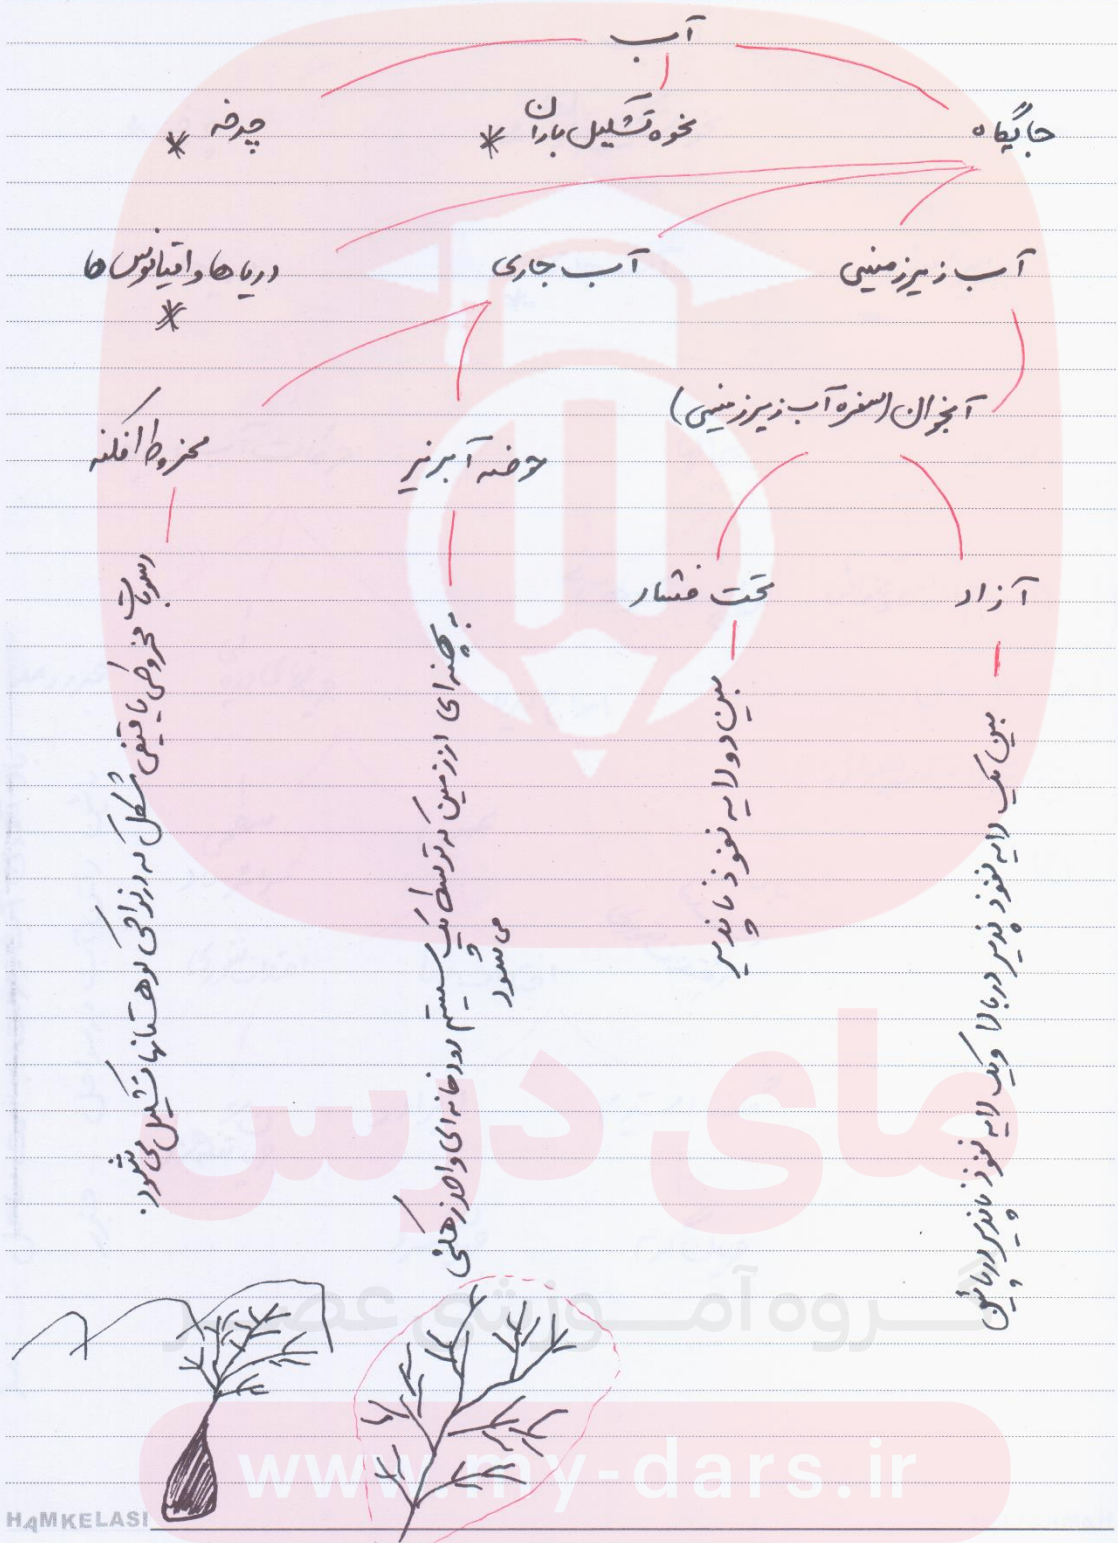 آب
جایگاه
نحوه تشکیل باران *
چرخه *
آب زیرزمینی
آب جاری
دریاها و اقیانوس ها
*
آبخوان (سفره آب زیرزمینی)
حوضه آبریز
مخروط افکنه
آزاد
تحت فشار
بین یک لایه نفوذ پذیر در بالا و یک لایه نفوذ ناپذیر در پائین
بین دو لایه نفوذ ناپذیر
به پهنه ای از زمین که توسط یک سیستم رودخانه ای واحد زهکشی
می شود
رسوبات مخروطی یا قیفی شکل که در نواحی کوهستانها تشکیل می شود.
مای درس
گروه آموزشی عصر
www.my-dars.ir
HAMKELASI